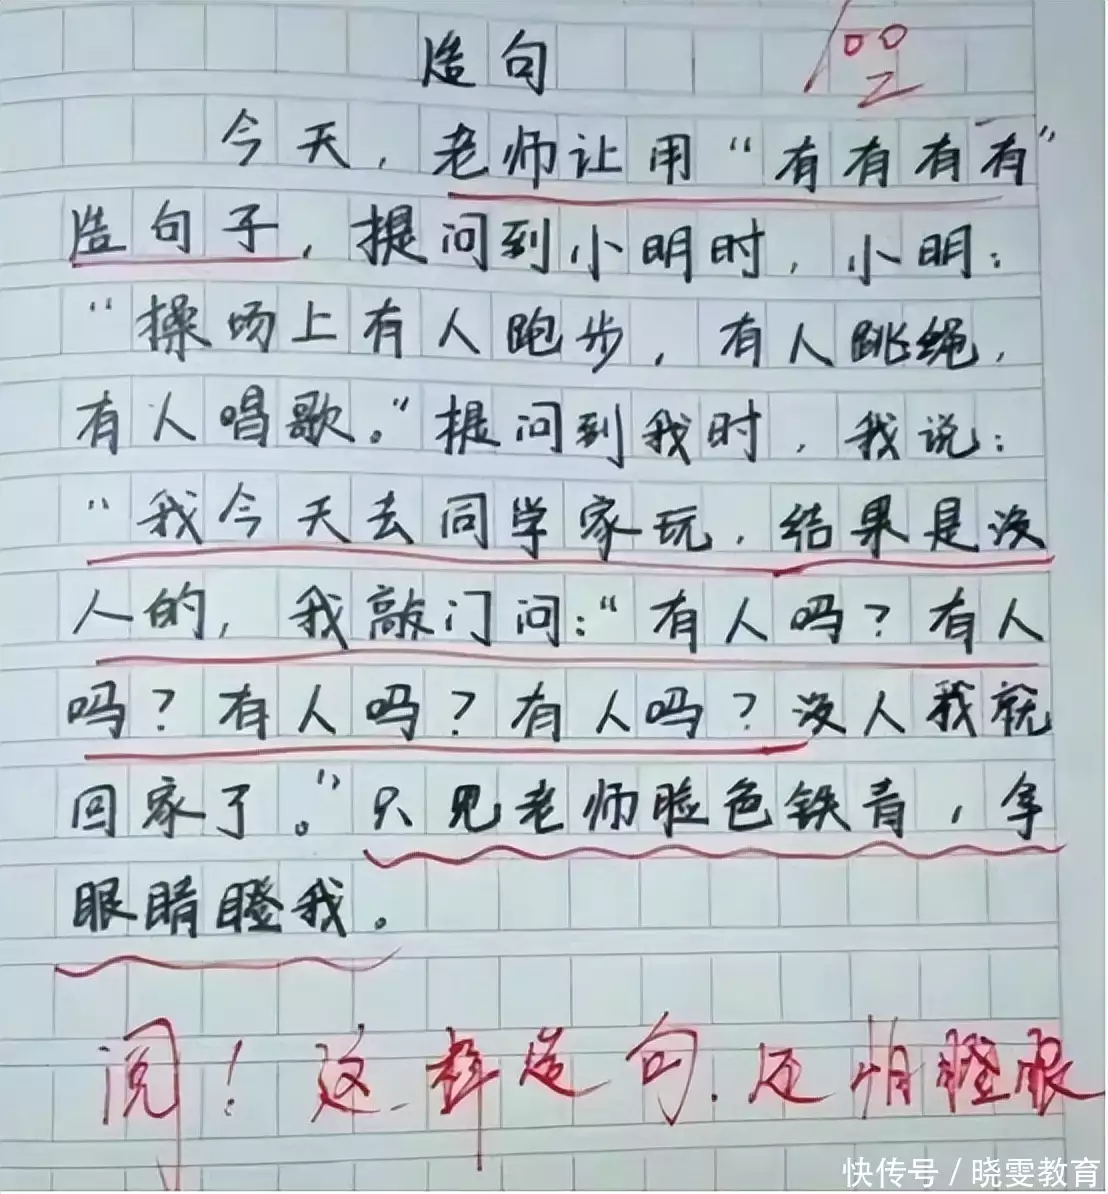 造句
今天，老师让用“有有有有”
造句子，提问到小明时，小明：
“操场上有人跑步，有人跳绳，
有人唱歌。”提问到我时，我说：
“我今天去同学家玩，结果是没
人的，我敲门问：“有人吗？有人
吗？有人吗？有人吗？没人我就
回家了。”只见老师脸色铁青，拿
眼睛瞪我。
阅！这样造句，还怕瞪眼
快传号／晓雯教育